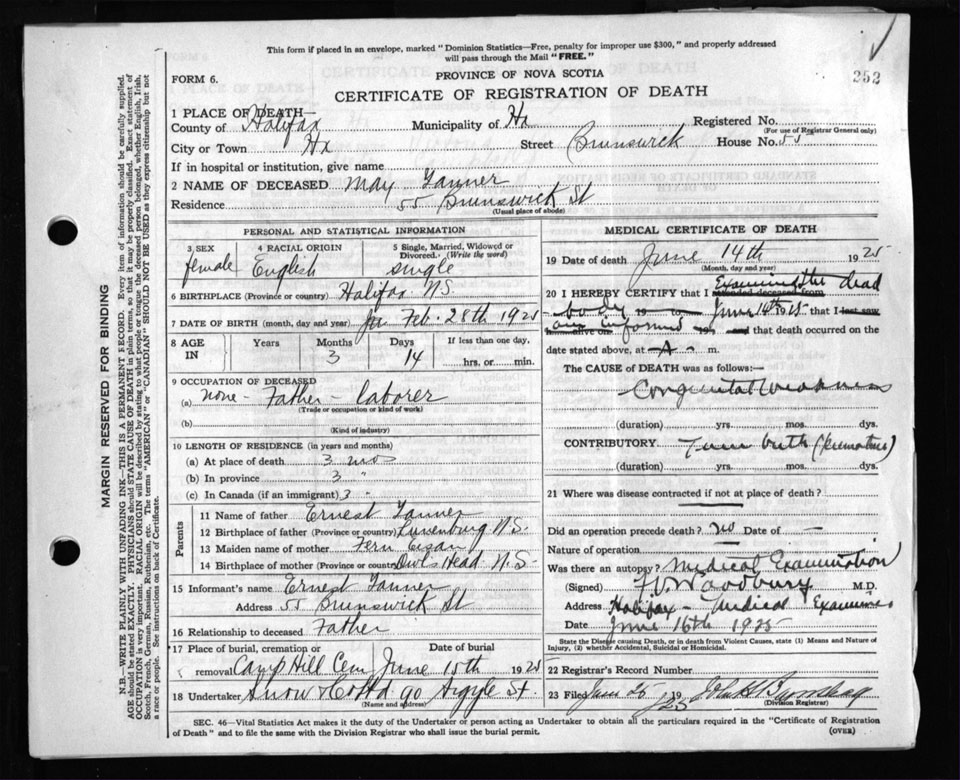 This form if placed in an envelope, marked "Dominion Statistics—Free, penalty for improper use $300," and properly addressed
will pass through the Mail "FREE."
FORM 6.
PROVINCE OF NOVA SCOTIA
252
CERTIFICATE OF REGISTRATION OF DEATH
1 PLACE OF DEATH—
County of Halifax Municipality of Hx Registered No.
(For use of Registrar General only)
City or Town Hx Street Brunswick House No. 55
If in hospital or institution, give name
2 NAME OF DECEASED May Tanner
Residence 55 Brunswick St
(Usual place of abode)
PERSONAL AND STATISTICAL INFORMATION
3 SEX 4 RACIAL ORIGIN 5 Single, Married, Widowed or Divorced. (Write the word)
female English single
6 BIRTHPLACE (Province or country) Halifax N.S.
7 DATE OF BIRTH (month, day and year) Feb. 28th 1925
8 AGE IN Years Months Days If less than one day,
3 14 hrs. or min.
9 OCCUPATION OF DECEASED
(a) none - Father - laborer
(Trade or occupation or kind of work)
(b)
(Kind of industry)
10 LENGTH OF RESIDENCE (in years and months)
(a) At place of death 3 mos
(b) In province 3 "
(c) In Canada (if an immigrant) 3 "
Parents
11 Name of father Ernest Tanner
12 Birthplace of father (Province or country) Lunenburg N.S.
13 Maiden name of mother Fern
14 Birthplace of mother (Province or country) Owls Head N.S.
15 Informant's name Ernest Tanner
Address 55 Brunswick St
16 Relationship to deceased Father
17 Place of burial, cremation or removal Date of burial
Camp Hill Cem June 15th 1925
18 Undertaker Snow & Co Ltd 90 Argyle St.
(Name and address)
MEDICAL CERTIFICATE OF DEATH
19 Date of death June 14th 1925
(Month, day and year)
20 I HEREBY CERTIFY that I attended deceased from Examined the dead
body 19 to June 14th 1925 that I last saw
alive on am informed 19 and that death occurred on the
date stated above, at A m.
The CAUSE of DEATH was as follows:—
Congenital weakness
(duration) yrs. mos. dys.
CONTRIBUTORY Twin birth (Premature)
(duration) yrs. mos. dys.
21 Where was disease contracted if not at place of death?
Did an operation precede death? no Date of —
Nature of operation
Was there an autopsy? Medical Examination
(Signed) Woodbury M.D.
Address Halifax - Medical Examiner
Date June 16th 1925
State the Disease causing Death, or in death from Violent Causes, state (1) Means and Nature of
Injury, (2) whether Accidental, Suicidal or Homicidal.
22 Registrar's Record Number
23 Filed June 26 1925
(Division Registrar)
SEC. 46—Vital Statistics Act makes it the duty of the Undertaker or person acting as Undertaker to obtain all the particulars required in the "Certificate of Registration
of Death" and to file the same with the Division Registrar who shall issue the burial permit.
(OVER)
MARGIN RESERVED FOR BINDING
N.B.—WRITE PLAINLY WITH UNFADING INK—THIS IS A PERMANENT RECORD. Every item of information should be carefully supplied.
AGE should be stated EXACTLY. PHYSICIANS should STATE CAUSE OF DEATH in plain terms, so that it may be properly classified. Exact statement of
OCCUPATION is very important. RACIAL ORIGIN will be described by stating to what people or tongue the deceased person belonged, whether English, Irish,
Scotch, French, German, Russian, Ruthenian, etc. The terms "AMERICAN" or "CANADIAN" SHOULD NOT BE USED as they express citizenship but not
a race or people. See instructions on back of Certificate.